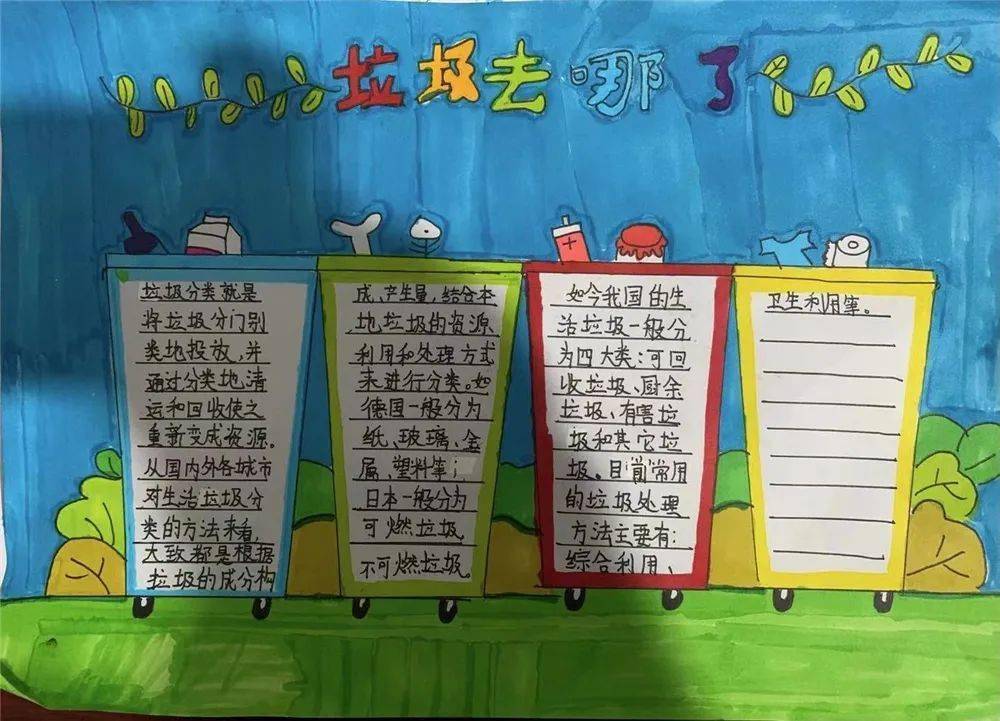 垃圾去哪了
垃圾分类就是
将垃圾分门别
类地投放,并
通过分类地清
运和回收使之
重新变成资源。
从国内外各城市
对生活垃圾分
类的方法来看,
大致都是根据
垃圾的成分构
成、产生量,结合本
地垃圾的资源
利用和处理方式
来进行分类。如
德国一般分为
纸、玻璃、金
属、塑料等;
日本一般分为
可燃垃圾
不可燃垃圾。
如今我国的生
活垃圾一般分
为四大类:可回
收垃圾、厨余
垃圾、有害垃
圾和其它垃
圾。目前常用
的垃圾处理
方法主要有:
综合利用、
卫生利用等。